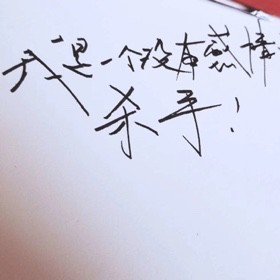 我是一个没有感情
杀手!